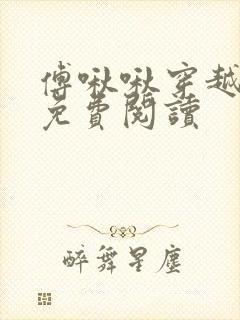 傅啾啾穿越
免費閱讀
醉舞星塵